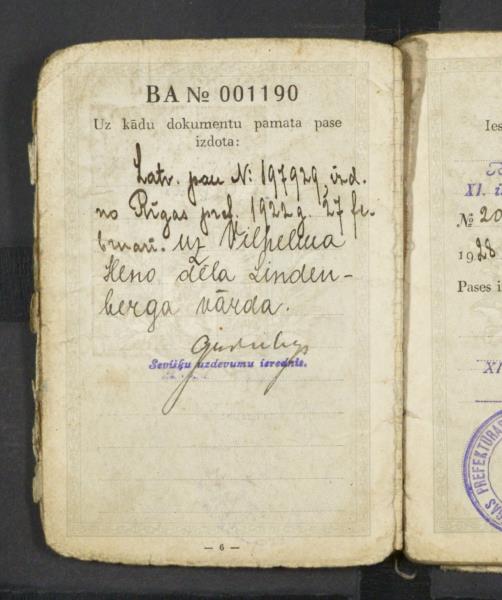 BA № 001190
Uz kādu dokumentu pamata pase
izdota:
Latv. pasi N: 197929, izd.
no Rīgas pref. 1922 g. 27 fe-
bruarī. uz Vilhelma
Heno dēla Linden-
berga vārda.
Sevišķu uzdevumu ierednis.
— 6 —
Ies
XI. i
№ 20
1928
Pases i
XI
GAS PREFEKTŪRAS